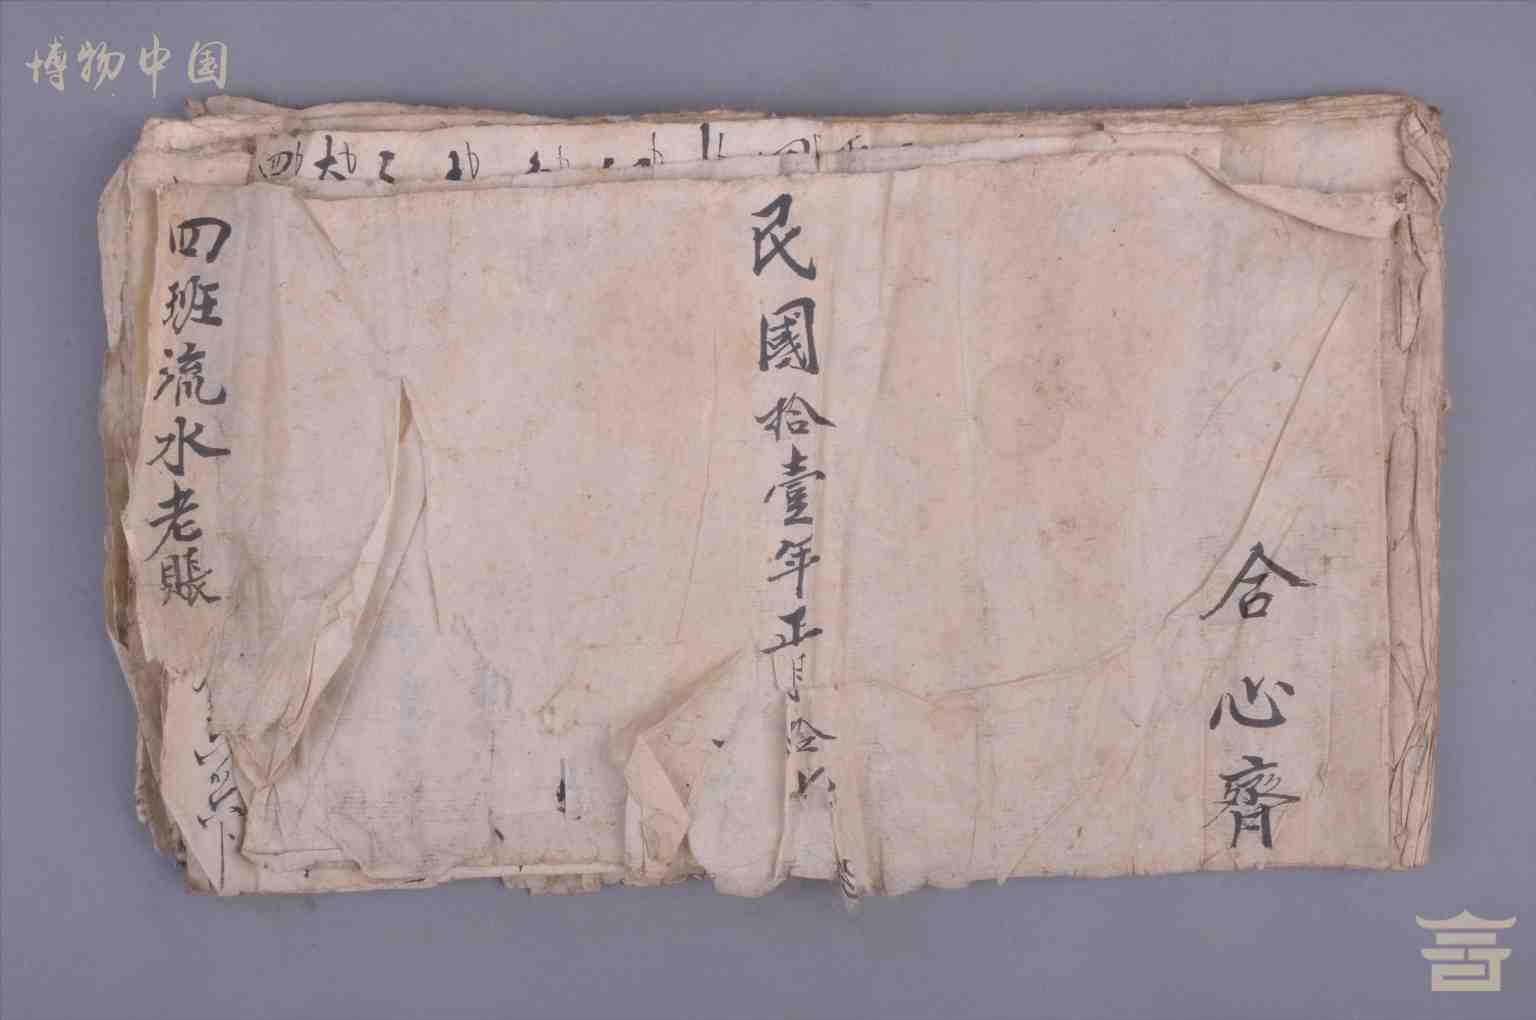 博物中国
合心齊
民國拾壹年正月拾
四班流水老賬